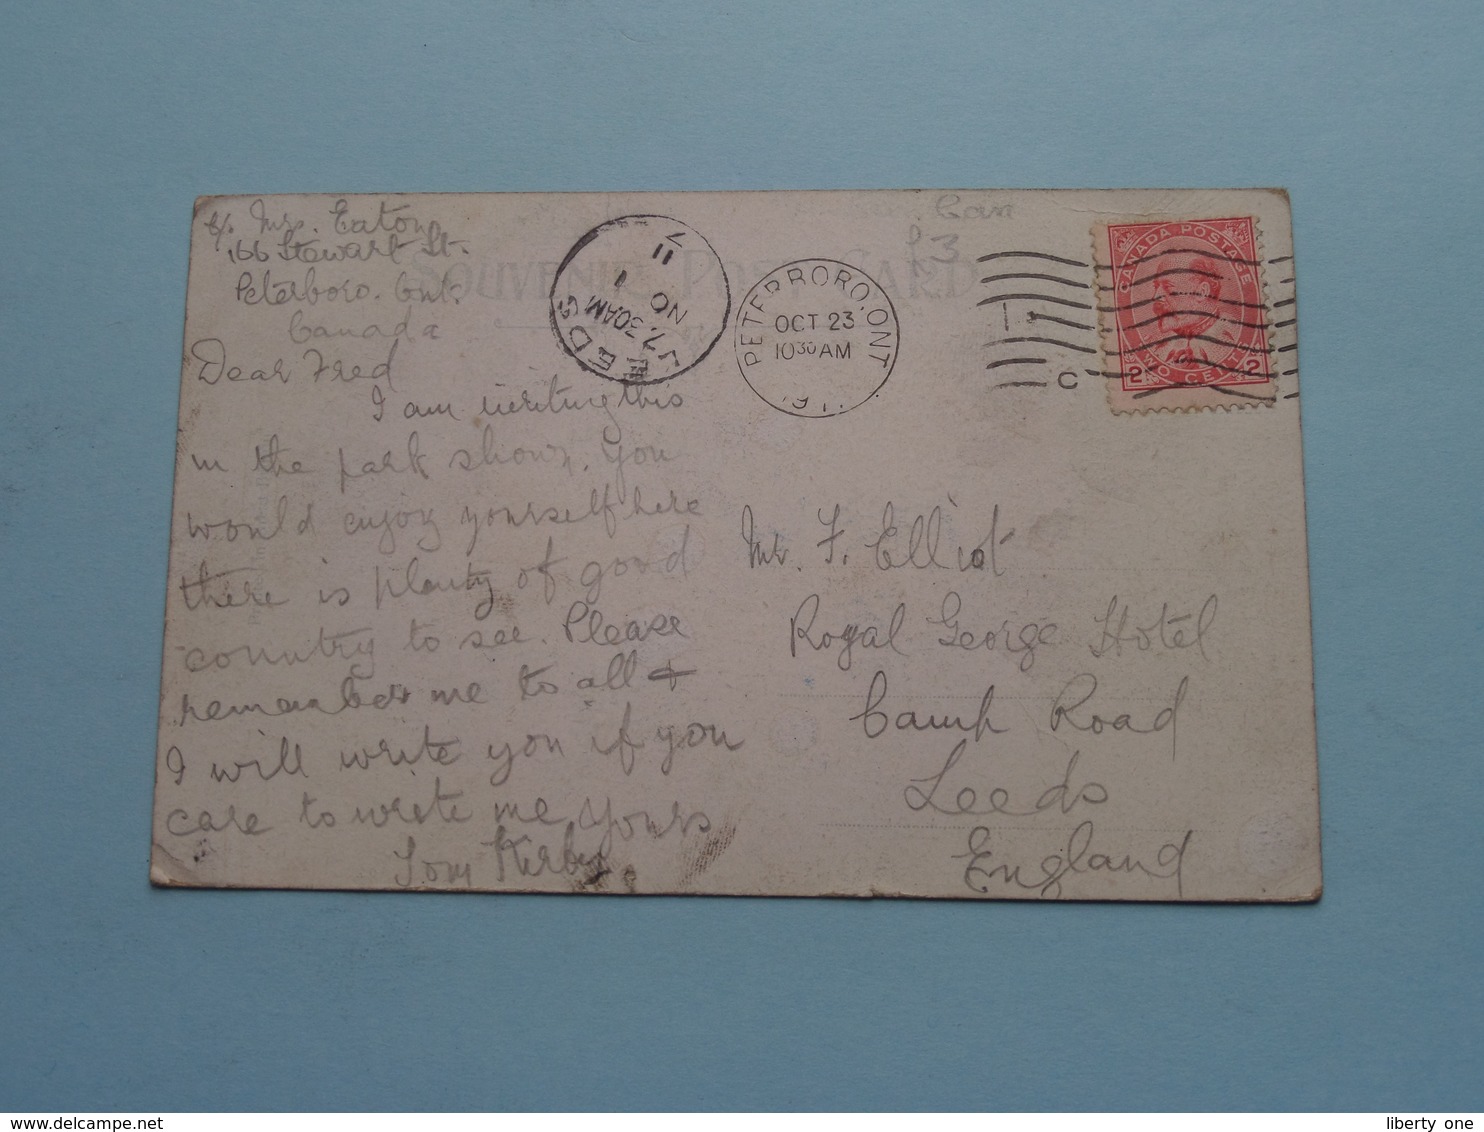 c/o Mrs. Eaton
166 Stewart St.
Peterboro. Ont.
Canada
Dear Fred
I am writing this
in the park shown. You
would enjoy yourself here
there is plenty of good
country to see. Please
remember me to all &
I will write you if you
care to write me yours
Tom Kirby
SOUVENIR POST CARD
LEEDS
7.30AM
NO 1
11
PETERBORO, ONT
OCT 23
10 30 AM
1911
C
Can
£3
CANADA POSTAGE
2 TWO CENTS 2
Mr. F. Elliot
Royal George Hotel
Camp Road
Leeds
England
liberty one